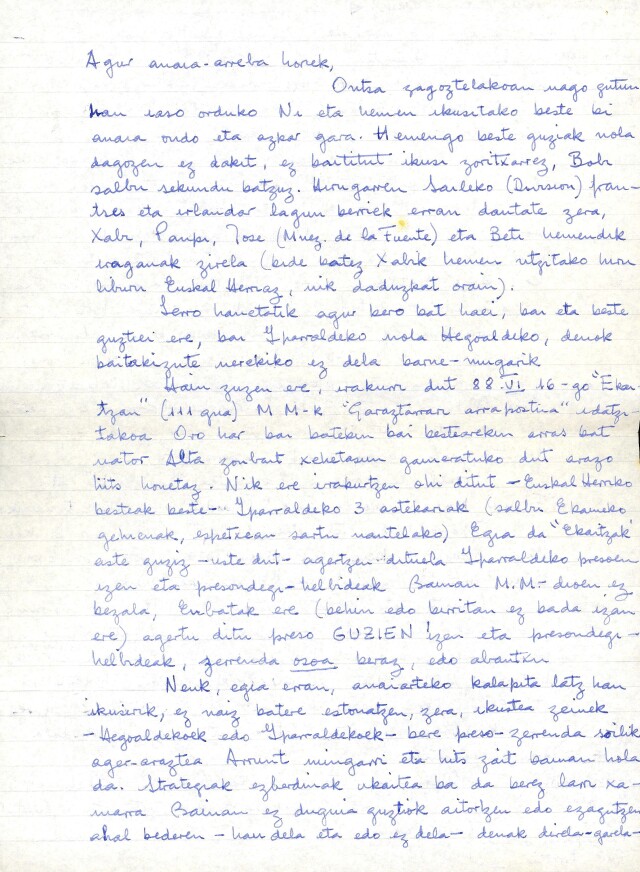 Agur anaia-arreba horiek,
Ontsa zagoztelakoan nago gutun
han iaso orduko Ni eta hemen ikusitako beste bi
anaia ondo eta azkar gara. Hemengo beste guziak nola
dagozen ez dakit, ez baititut ikusi zoritxarrez, Bobi
salbu sekundu batzuz. Hirugarren Saileko (Division) fran-
tses eta irlandar lagun berriek erran dautate zera,
Xabi, Panpi, Jose (Mnez. de la Fuente) eta Beti hemendik
iraganak zirela (bide batez Xabik hemen utzitako hiru
liburu Euskal Herriaz, nik daduzkat orain).
Lerro hauetatik agur bero bat haei, bai eta beste
guztiei ere, bai Iparraldeko nola Hegoaldeko, denok
baitakizute nerekiko ez dela barne-mugarik
Hain zuzen ere, irakurri dut 88.VI.16-go "Ekai-
tzan" (111 gna) M M-k "Garaztarrari arrapostua" idatzi-
takoa Oro har bai batekin bai bestearekin arras bat
nator Alta zonbait xehetasun gaineratuko dut arazo
hits honetaz. Nik ere irakurtzen ohi ditut - Euskal Herriko
besteak beste- Iparraldeko 3 astekariak (salbu Ekaineko
gehienak, espetxean sartu nautelako) Egia da "Ekaitzak"
aste guziz - uste dut - agertzen dituela Iparraldeko presoen
izen eta presondegi-helbideak Bainan M.M.- dioen ez
bezala, Enbatak ere (behin edo berritan ez bada izan
ere) agertu ditu preso GUZIEN izen eta presondegi-
helbideak, zerrenda osoa beraz, edo abantxu
Nenk, egia erran, anaiarteko kalapita latz hau
ikusirik, ez naiz batere estonatzen, zera, ikustea zeinek
- Hegoaldekoek edo Iparraldekoek - bere preso-zerrenda soilik
ager-araztea Arrunt mingarri eta hits zait bainan hola
da. Strategiak ezberdinak ukaitea ba da berez larri xa-
marra Bainan ez duguia guztiok aitortzen edo ezagutzen
ahal bederen - han dela eta edo ez dela - denak direla-garela-